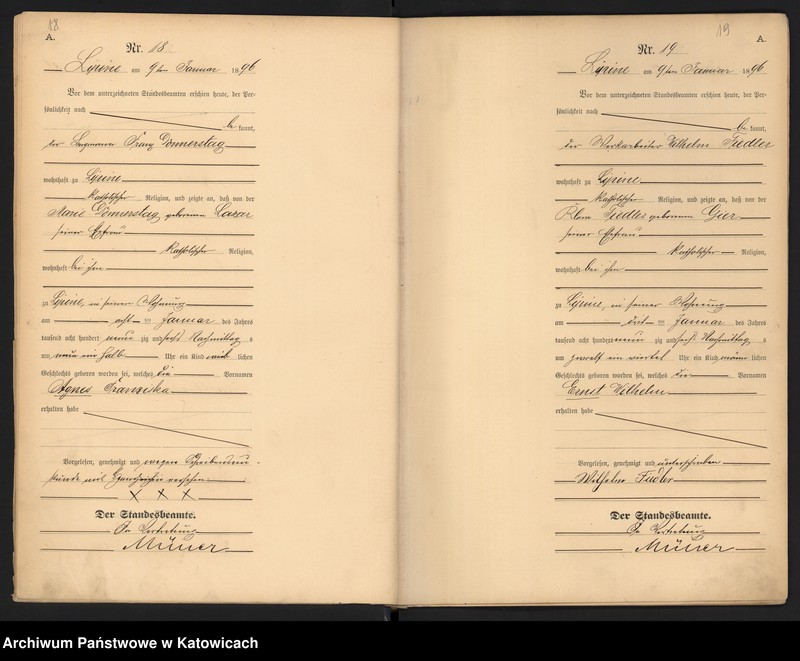 18
A.
Nr. 18
Lipine am 9ten Januar 1896
Vor dem unterzeichneten Standesbeamten erschien heute, der Per-
sönlichkeit nach
be kannt,
der Bergmann Franz Donnerstag
wohnhaft zu Lipine
katholischer Religion, und zeigte an, daß von der
Marie Donnerstag geborenen
seiner Ehefrau
katholischer Religion,
wohnhaft bei ihm
zu Lipine, in seiner Wohnung
am acht ten Januar des Jahres
tausend acht hundert neun zig und sechs Nachmittag s
um neun ein halb Uhr ein Kind weib lichen
Geschlechts geboren worden sei, welches die Vornamen
Agnes Franziska
erhalten habe
Vorgelesen, genehmigt und wegen Schreibensun-
kunde mit Handzeichen versehen
X X X
Der Standesbeamte.
In Vertretung
19
A.
Nr. 19
Lipine am 9ten Januar 1896
Vor dem unterzeichneten Standesbeamten erschien heute, der Per-
sönlichkeit nach
be kannt,
der Werkarbeiter Wilhelm Fiedler
wohnhaft zu Lipine
katholischer Religion, und zeigte an, daß von der
Klara Fiedler geborenen
seiner Ehefrau
katholischer Religion,
wohnhaft bei ihm
zu Lipine, in seiner Wohnung
am ten Januar des Jahres
tausend acht hundert neun zig und sechs Nachmittag s
um zwoelf ein viertel Uhr ein Kind männ lichen
Geschlechts geboren worden sei, welches die Vornamen
Ernst Wilhelm
erhalten habe
Vorgelesen, genehmigt und unterschrieben
Wilhelm Fiedler
Der Standesbeamte.
In Vertretung
Archiwum Państwowe w Katowicach